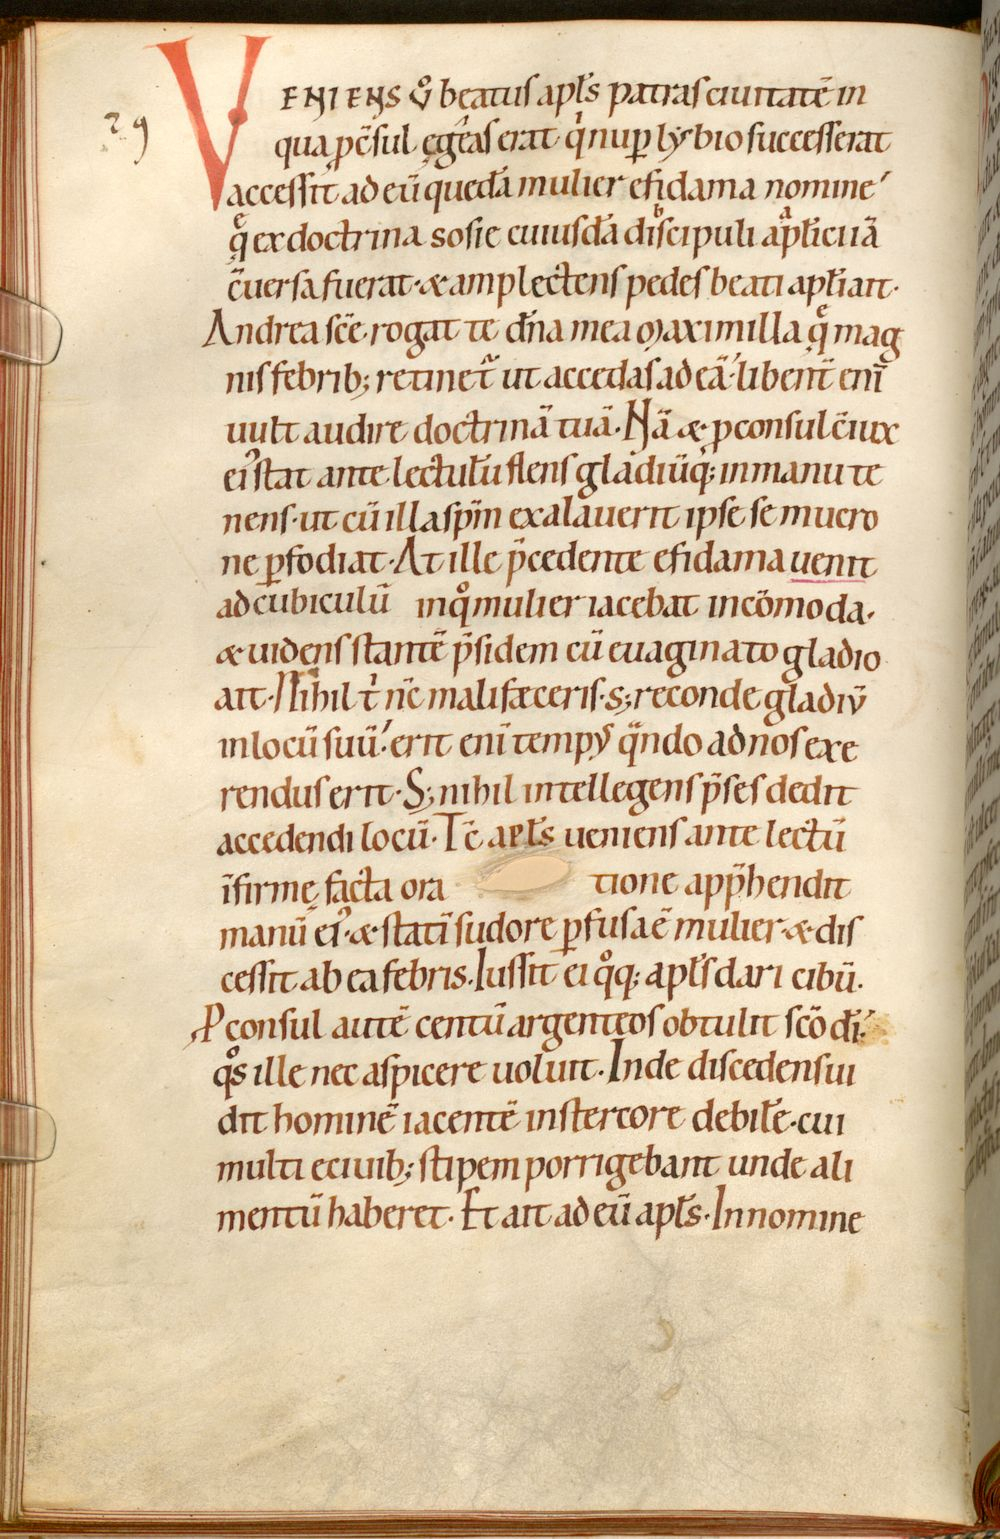 29
VENIENS v̊ beatus apl̅s patras ciuitatē in
qua ꝓc̄sul ęgeas erat qͥ nuꝑ lybio successerat
accessit ad eū quedā mulier efidama nomine
q̄ ex doctrina sosie cuiusdā discipuli apl̅ici iā
c̄uersa fuerat· & amplectens pedes beati apl̅i ait·
Andrea sc̄e· rogat te dn̄a mea maximilla q̄ mag
nis febrib; retinet᷑ ut accedas ad eā· libent̄ enī
uult audire doctrinā tuā· Nā & ꝓconsul c̄iux
ei᷒ stat ante lectulū flens gladiūq; in manu te
nens· ut cū illa sp̄m exalauerit ipse se mucro
ne ꝑfodiat· At ille p̄cedente efidama uenit
ad cubiculū in qͦ mulier iacebat incōmoda·
& uidens stantē p̄sidem cū euaginato gladio
ait· Nihil tͥ nc̄ mali fęceris· s; reconde gladiū
in locū suū· erit enī temp᷒ qᷓndo ad nos exe
rendus erit· S; nihil intellegens p̄ses dedit
accedendi locū· Tc̄ apl̅s ueniens ante lectū
īfirmę facta ora tione app̄hendit
manū ei᷒· & statī sudore ꝑfusa ē mulier· & dis
cessit ab ea febris. Iussit ei qͦq; apl̅s dari cibū·
Ꝓconsul autē centū argenteos obtulit sc̄o dī·
qͦs ille nec aspicere uoluit· Inde discedens ui
dit hominē iacentē in stercore debilē· cui
multi e ciuib; stipem porrigebant unde ali
mentū haberet· Et ait ad eū apl̅s· In nomine